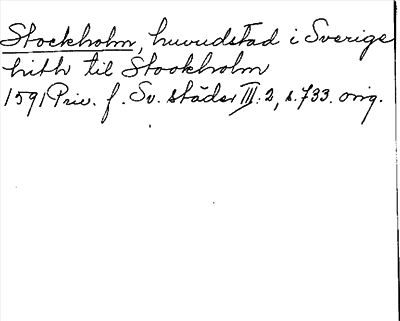 Stockholm, huvudstad i Sverige
hith til Stockholm
1591 Priv. f. Sv. städer III:2, s.733. orig.